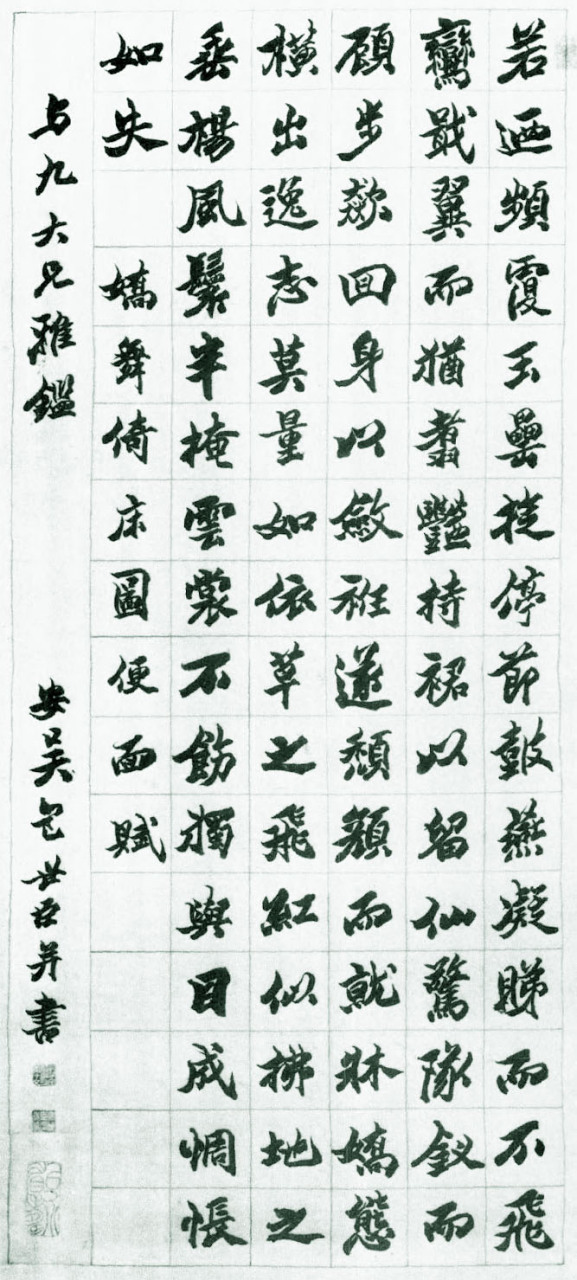 若迺頻霞玉罍徒停節鼓燕凝睇而不飛
鸞戢翼而猶翥豔持裾以留仙驚隊釵而
顧步歘回身以斂袵遂頳顏而就牀嬌態
橫出逸志莫量如依草之飛紅似拂地之
垂楊風鬟半掩雲裳不飭獨與目成惆悵
如失 嬌舞倚床圖便面賦
与九大兄雅鑑
安吴包世臣并書